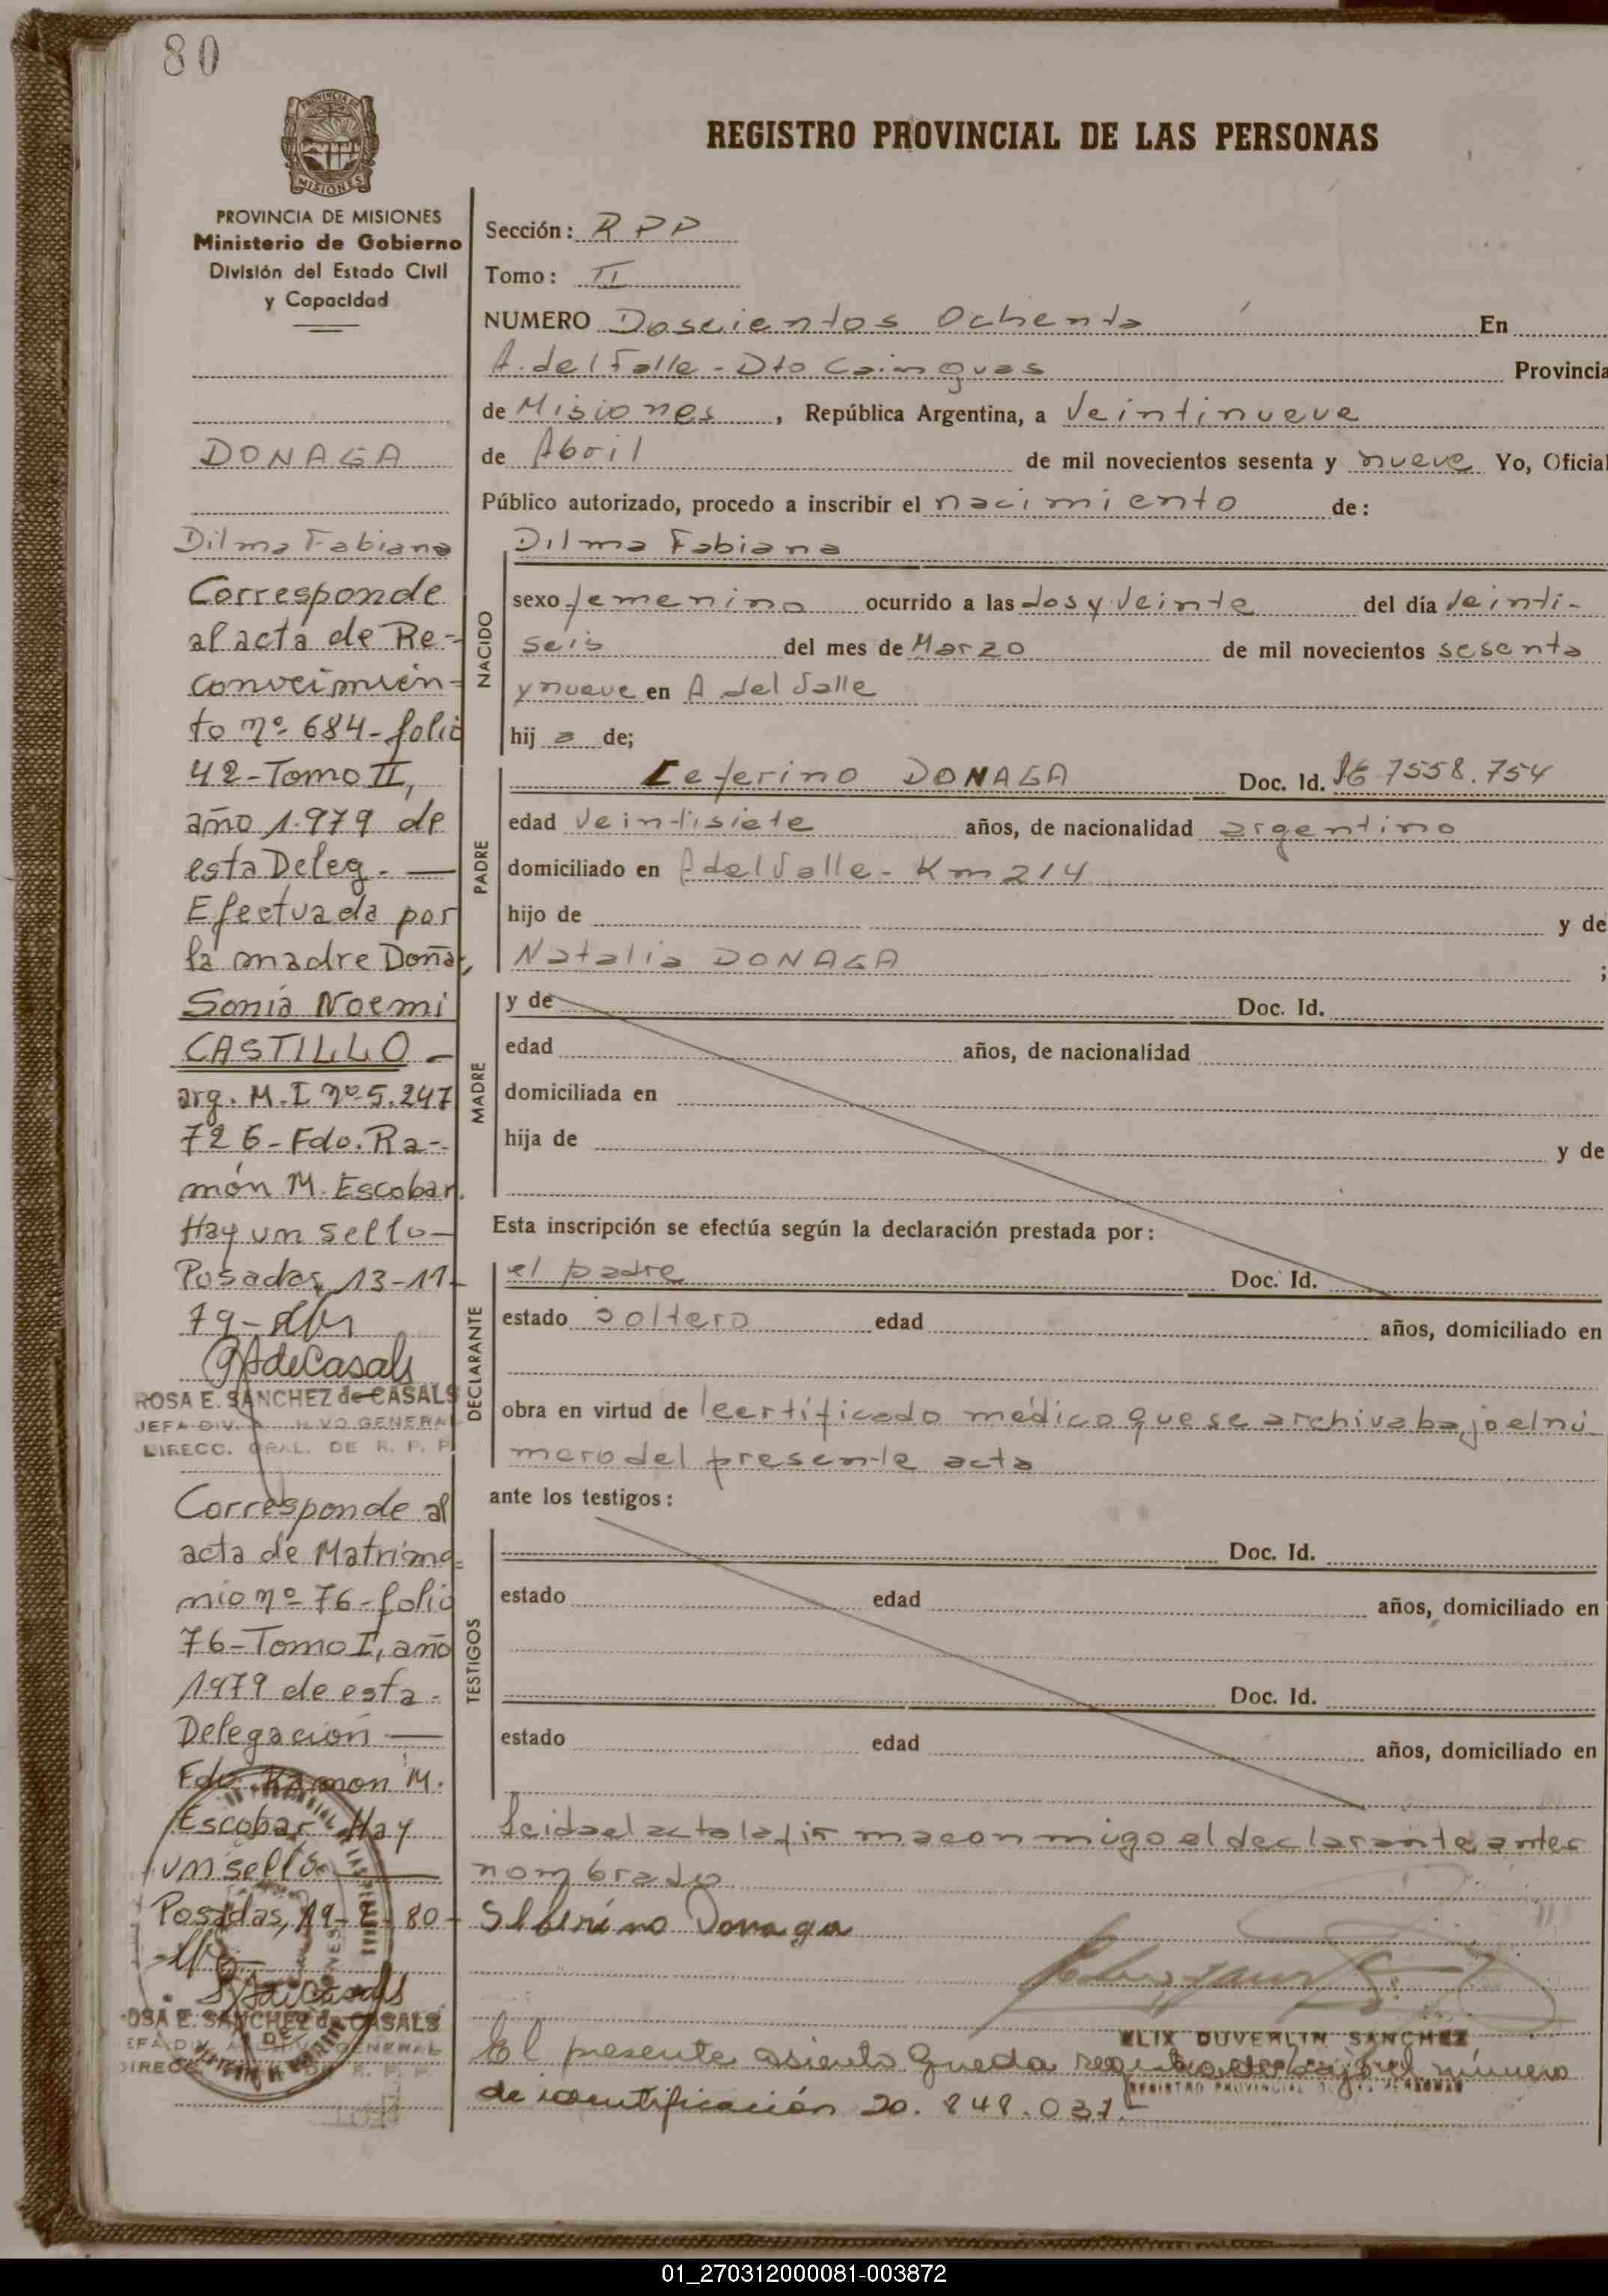 80
PROVINCIA DE
MISIONES
REGISTRO PROVINCIAL DE LAS PERSONAS
PROVINCIA DE MISIONES
Ministerio de Gobierno
División del Estado Civil
y Capacidad
DONAGA
Dilma Fabiana
Corresponde
al acta de Re-
conocimien-
to nº 684-folio
42-Tomo II,
año 1.979 de
esta Deleg. —
Efectuada por
la madre Doña,
Sonia Noemi
CASTILLO -
arg. M.I nº 5.247
726- Fdo. Ra-
món M. Escobar.
Hay un sello-
Posadas, 13-11-
79-
ROSA E. SANCHEZ de CASALS
JEFA DIV. GENERAL
DIRECC. GRAL. DE R. P. P.
Corresponde al
acta de Matrimo-
nio nº 76-folio
76-Tomo I, año
1979 de esta-
Delegación —
Fdo. Ramon M.
Escobar Hay
un sello. —
Posadas, 19- 80-
OSA E. SANCHEZ de CASALS
EFA DIV. GENERAL
DIRECC. R. P. P.
Sección: R P P
Tomo: II
NUMERO Doscientos Ochenta En
A. del Valle - Dto Cainguas Provincia
de Misiones, República Argentina, a Veintinueve
de Abril de mil novecientos sesenta y nueve Yo, Oficial
Público autorizado, procedo a inscribir el nacimiento de:
NACIDO
Dilma Fabiana
sexo femenino ocurrido a las dos y Veinte del día Veinti-
seis del mes de Marzo de mil novecientos sesenta
y nueve en A del Valle
hij a de;
PADRE
Ceferino DONAGA Doc. Id. 7558.754
edad Veintisiete años, de nacionalidad argentino
domiciliado en A del Valle - Km 214
hijo de y de
Natalia DONAGA ;
MADRE
y de Doc. Id.
edad años, de nacionalidad
domiciliada en
hija de y de
Esta inscripción se efectúa según la declaración prestada por:
DECLARANTE
el padre Doc. Id.
estado Soltero edad años, domiciliado en
obra en virtud de certificado médico que se archiva bajo el nú-
mero del presente acta
ante los testigos:
TESTIGOS
Doc. Id.
estado edad años, domiciliado en
Doc. Id.
estado edad años, domiciliado en
Leida el acta la firma conmigo el declarante antes
nombrado
Donaga
ELIX DUVERLIN SANCHEZ
REGISTRO PROVINCIAL DE LAS PERSONAS
El presente asiento queda registrado bajo el número
de identificación 20.848.031.
01_270312000081-003872